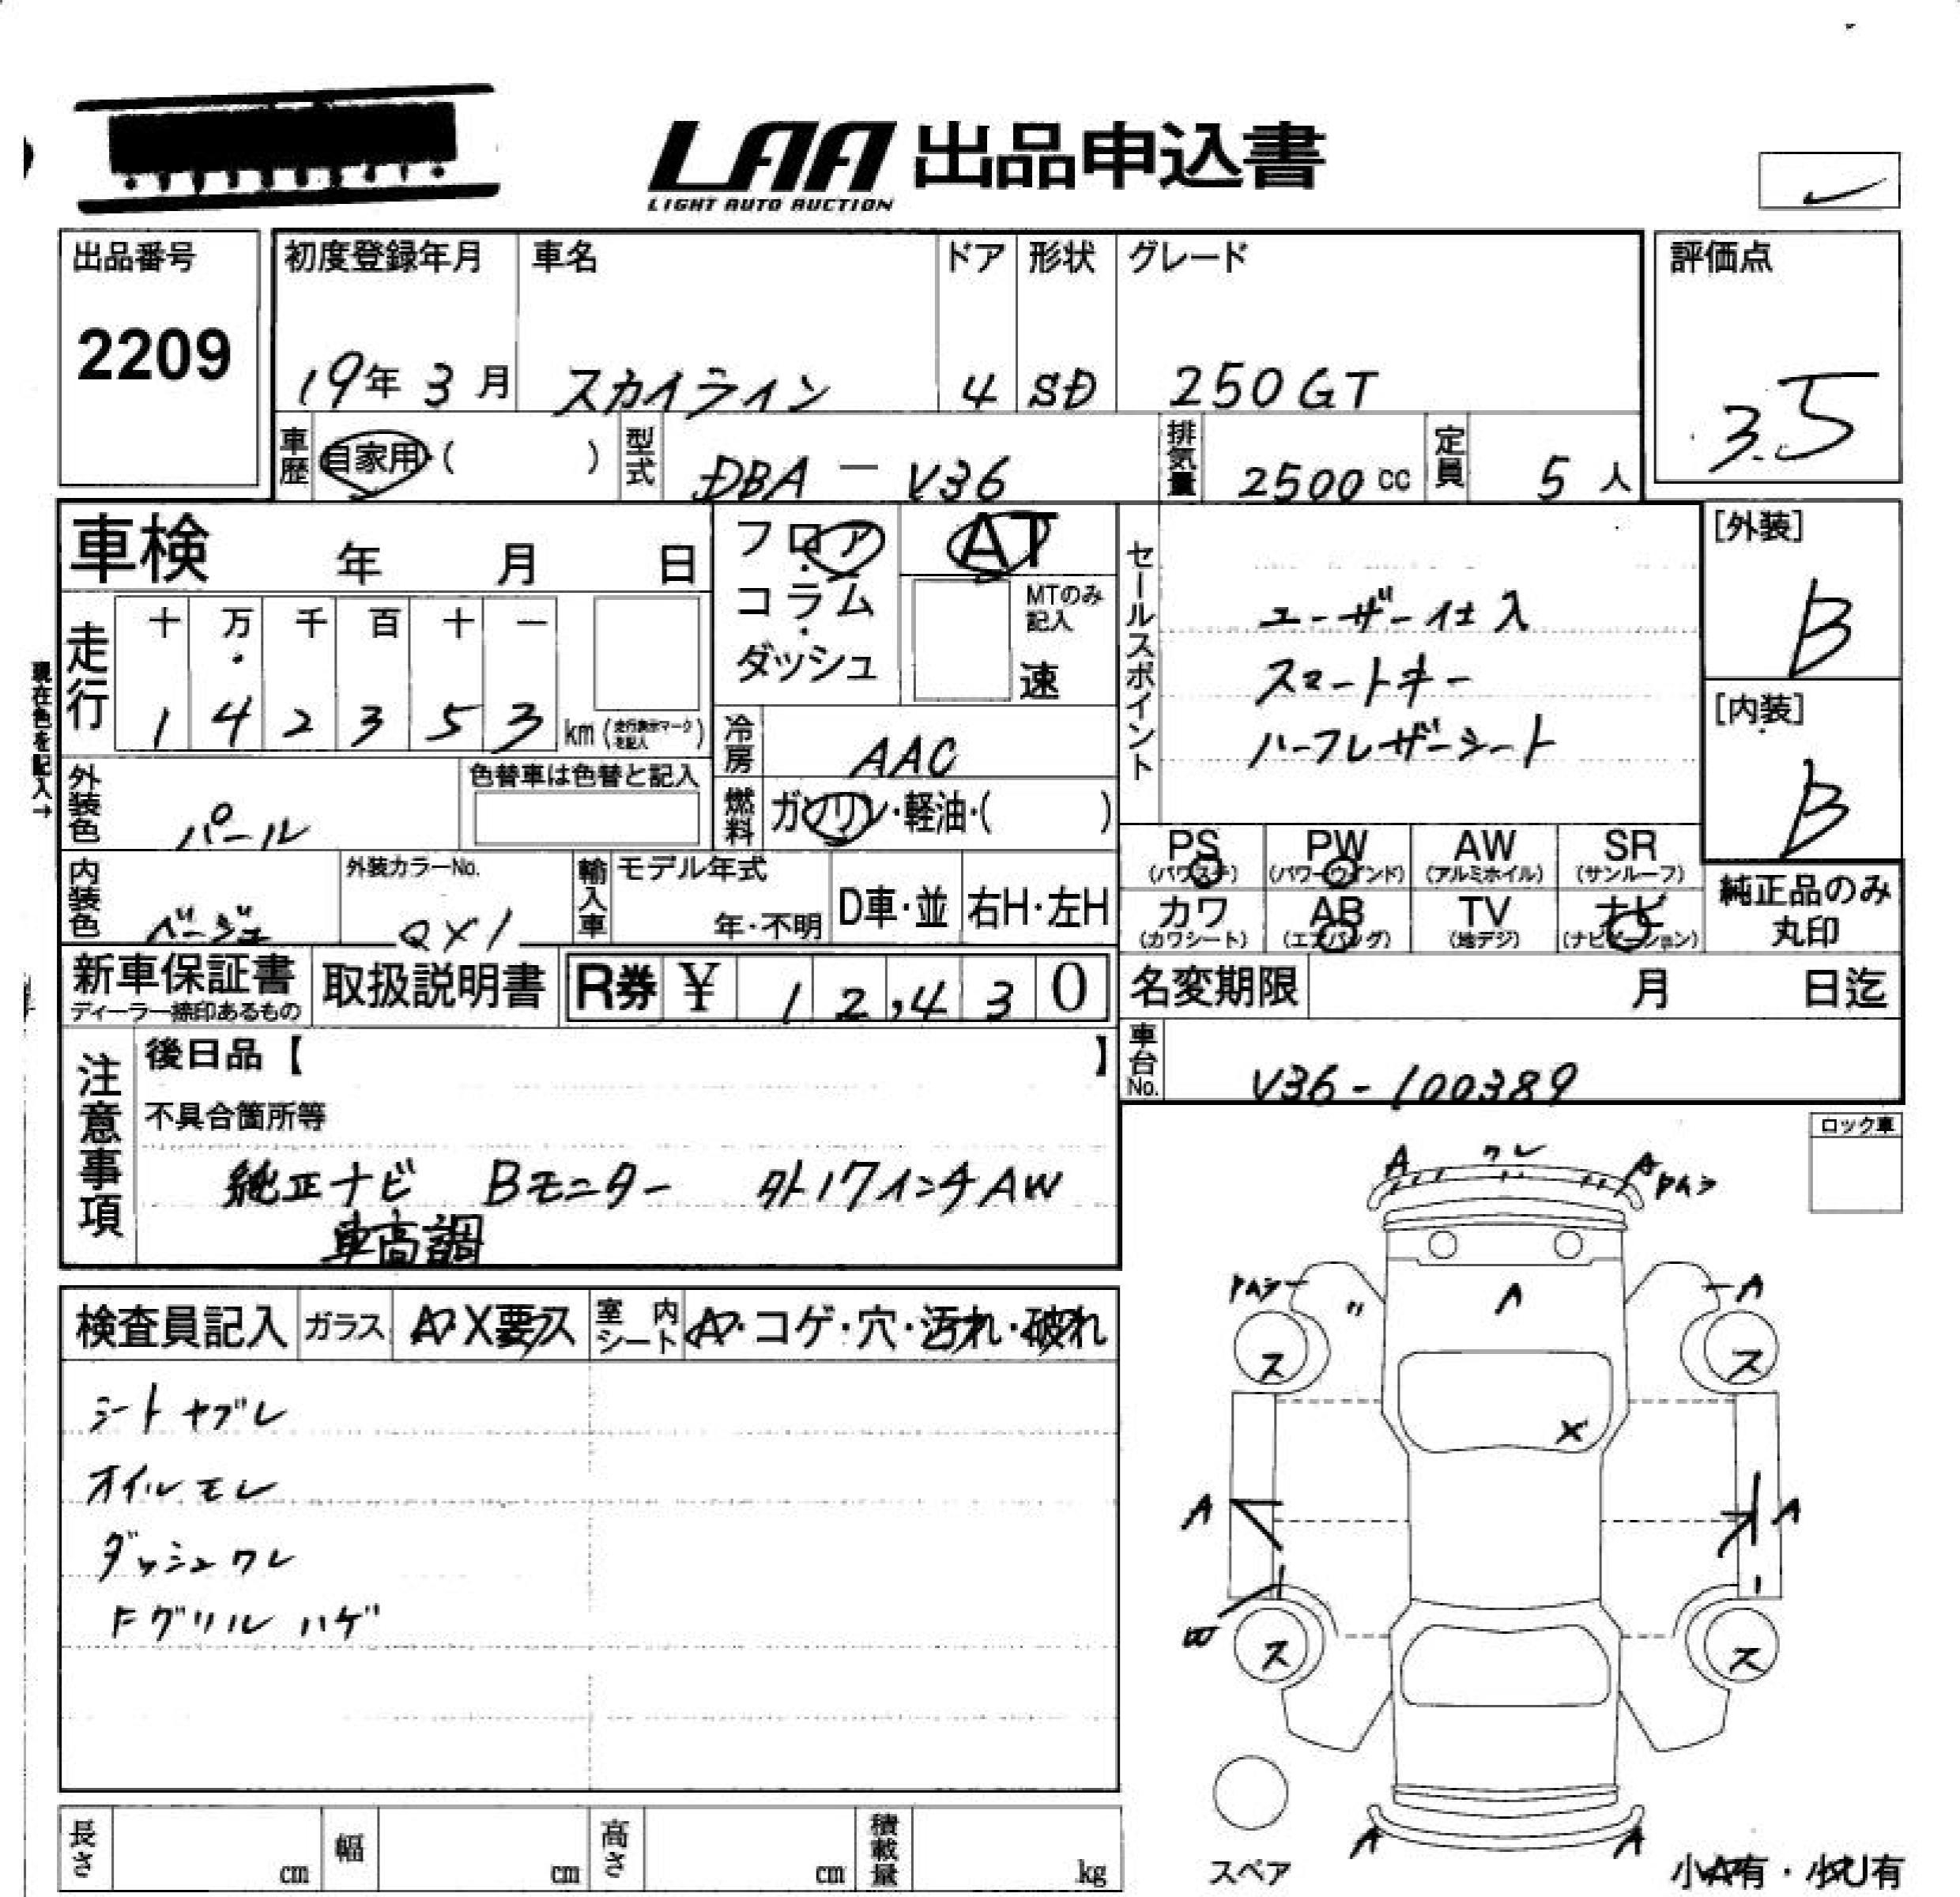 LAA 出品申込書
LIGHT AUTO AUCTION
出品番号
2209
初度登録年月
19年 3月
車名
スカイライン
ドア
4
形状
SD
グレード
250GT
評価点
3.5
車歴 自家用・( )
型式 DBA - V36
排気量 2500 cc
定員 5 人
車検 年 月 日
フロア・コラム・ダッシュ
AT
MTのみ記入
速
走行
十 万 千 百 十 一
1 4 2 3 5 3 km (走行表示マークを記入)
現在色を記入→
外装色 パール
色替車は色替と記入
冷房 AAC
燃料 ガソリン・軽油・( )
セールスポイント
ユーザー仕入
スマートキー
ハーフレザーシート
[外装]
B
[内装]
B
内装色 ベージュ
外装カラーNo.
QX1
輸入車
モデル年式
年・不明
D車・並
右H・左H
PS (パワステ)
PW (パワーウインド)
AW (アルミホイル)
SR (サンルーフ)
カワ (カワシート)
AB (エアバッグ)
TV (地デジ)
ナビ (ナビゲーション)
純正品のみ丸印
新車保証書
ディーラー捺印あるもの
取扱説明書
R券 ¥ 12,430
名変期限 月 日迄
車台No. V36-100389
注意事項
後日品【 】
不具合箇所等
純正ナビ Bモニター 外17インチAW
車高調
ロック車
検査員記入
ガラス A・X要ス
室内シート A・コゲ・穴・汚れ・破れ
シートヤブレ
オイルモレ
ダッシュワレ
Fグリルハゲ
A ワレ A
A
A
ス ス
X
A A
W
ス ス
A A
スペア
小A有・小U有
長さ cm
幅 cm
高さ cm
積載量 kg